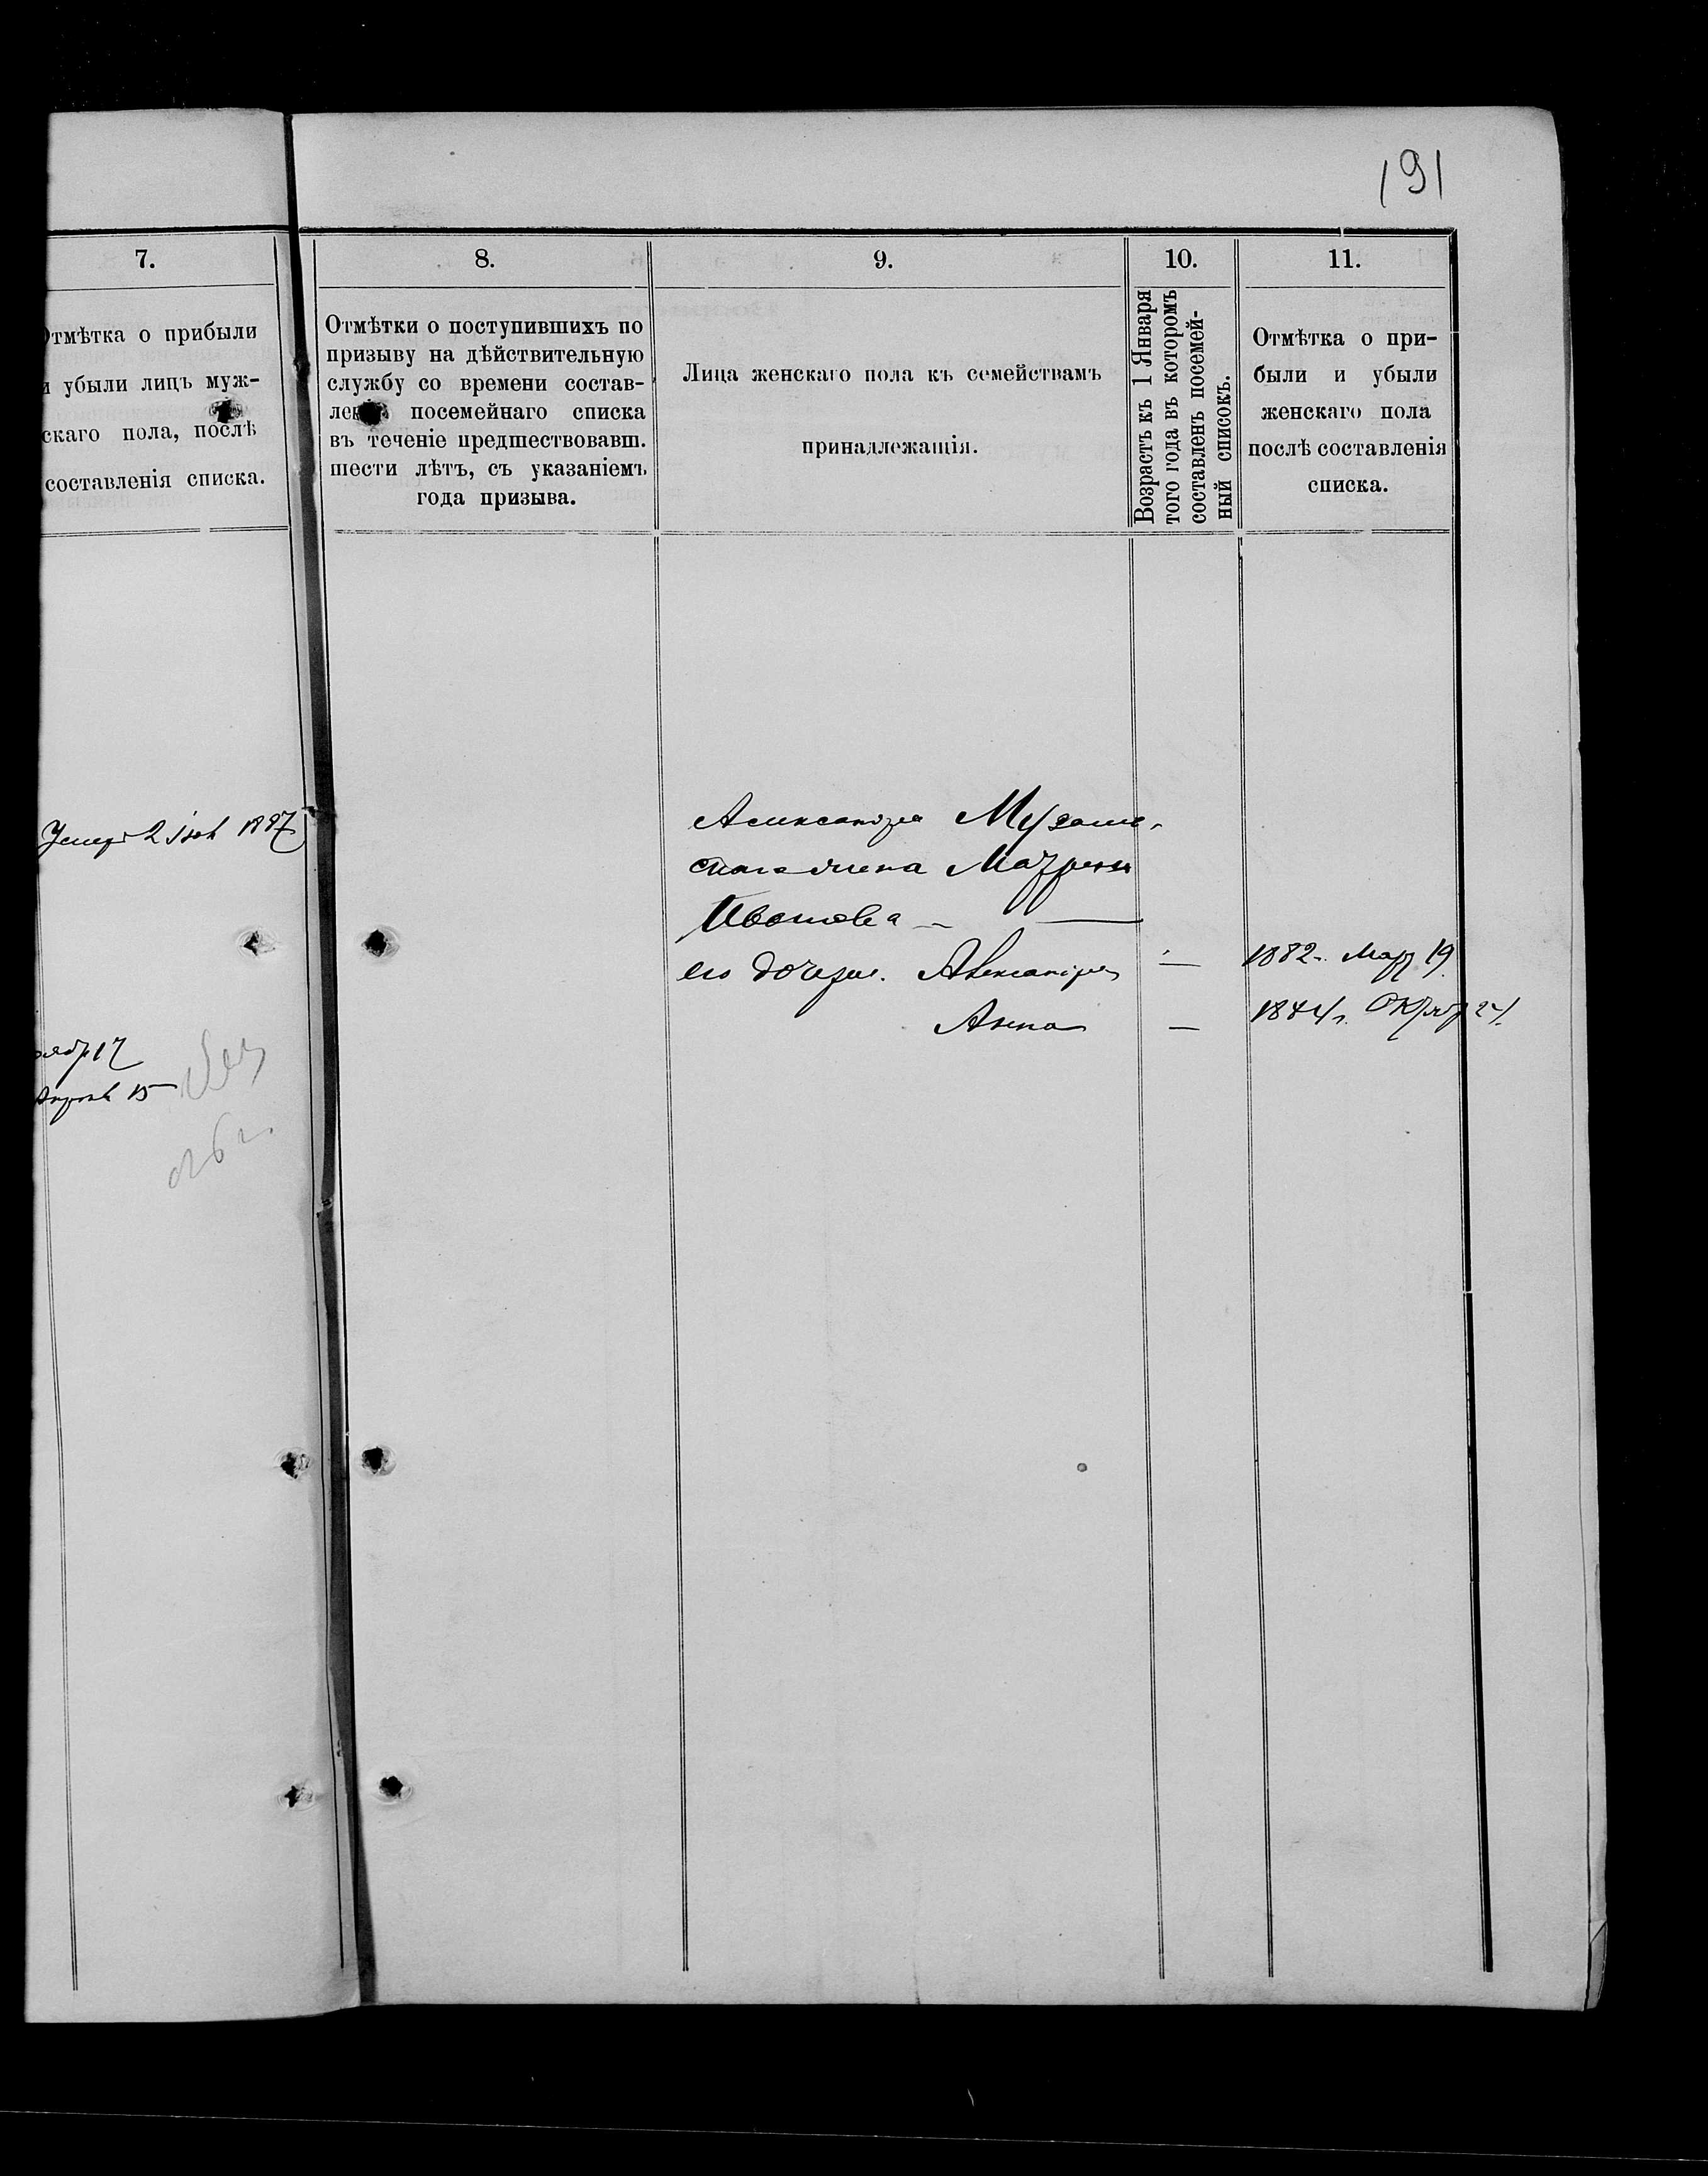 191
7.
Отмѣтка о прибыли
и убыли лицъ муж-
скаго пола, послѣ
составленія списка.
8.
Отмѣтки о поступившихъ по
призыву на дѣйствительную
службу со времени состав-
ленія посемейнаго списка
въ теченіе предшествовавш.
шести лѣтъ, съ указаніемъ
года призыва.
9.
Лица женскаго пола къ семействамъ
принадлежащія.
10.
Возрастъ къ 1 Января
того года въ которомъ
составленъ посемей-
ный списокъ.
11.
Отмѣтка о при-
были и убыли
женскаго пола
послѣ составленія
списка.
Умеръ 2 1887
Александра
жена Матрена
Иванова
его дочери. Александра — 1882 г. Март 19
Анна — Октяб 24
17
15